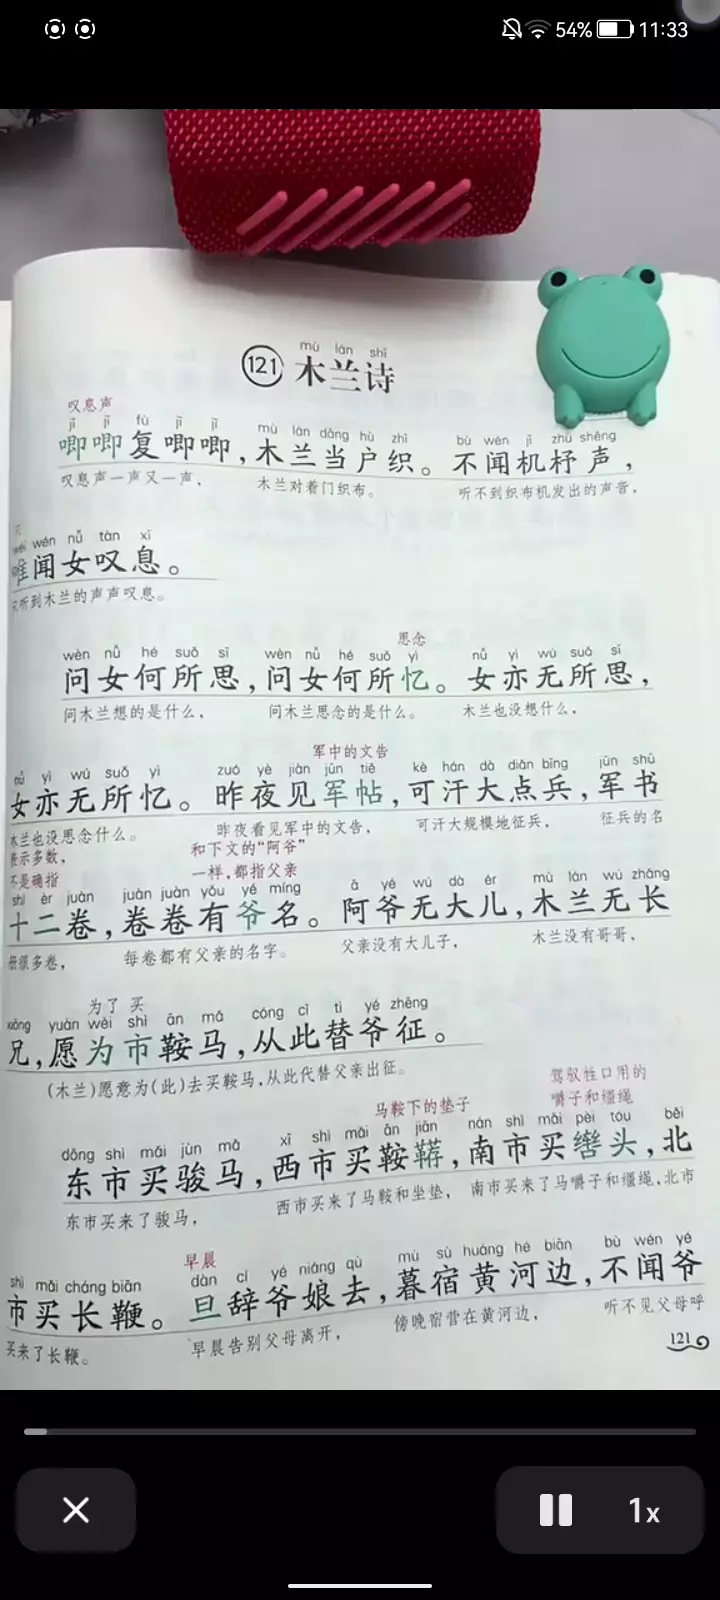 54% 11:33
mù lán shī
121 木兰诗
叹息声
jī jī fù jī jī mù lán dāng hù zhī bù wén jī zhù shēng
唧唧复唧唧，木兰当户织。不闻机杼声，
叹息声一声又一声， 木兰对着门织布。 听不到织布机发出的声音，
只
wéi wén nǚ tàn xī
唯闻女叹息。
只听到木兰的声声叹息。
思念
wèn nǚ hé suǒ sī wèn nǚ hé suǒ yì nǚ yì wú suǒ sī
问女何所思，问女何所忆。女亦无所思，
问木兰想的是什么， 问木兰思念的是什么。 木兰也没想什么，
军中的文告
nǚ yì wú suǒ yì zuó yè jiàn jūn tiě kè hán dà diǎn bīng jūn shū
女亦无所忆。昨夜见军帖，可汗大点兵，军书
木兰也没思念什么。 昨夜看见军中的文告， 可汗大规模地征兵， 征兵的名
表示多数， 和下文的“阿爷”
不是确指 一样，都指父亲
shí èr juàn juàn juàn yǒu yé míng ā yé wú dà ér mù lán wú zhǎng
十二卷，卷卷有爷名。阿爷无大儿，木兰无长
册很多卷， 每卷都有父亲的名字。 父亲没有大儿子， 木兰没有哥哥，
为了 买
xiōng yuàn wèi shì ān mǎ cóng cǐ tì yé zhēng
兄，愿为市鞍马，从此替爷征。
(木兰)愿意为(此)去买鞍马，从此代替父亲出征。
驾驭牲口用的
马鞍下的垫子 嚼子和缰绳
dōng shì mǎi jùn mǎ xī shì mǎi ān jiān nán shì mǎi pèi tóu běi
东市买骏马，西市买鞍鞯，南市买辔头，北
东市买来了骏马， 西市买来了马鞍和坐垫， 南市买来了马嚼子和缰绳，北市
早晨
shì mǎi cháng biān dàn cí yé niáng qù mù sù huáng hé biān bù wén yé
市买长鞭。旦辞爷娘去，暮宿黄河边，不闻爷
买来了长鞭。 早晨告别父母离开， 傍晚宿营在黄河边， 听不见父母呼
121
1x